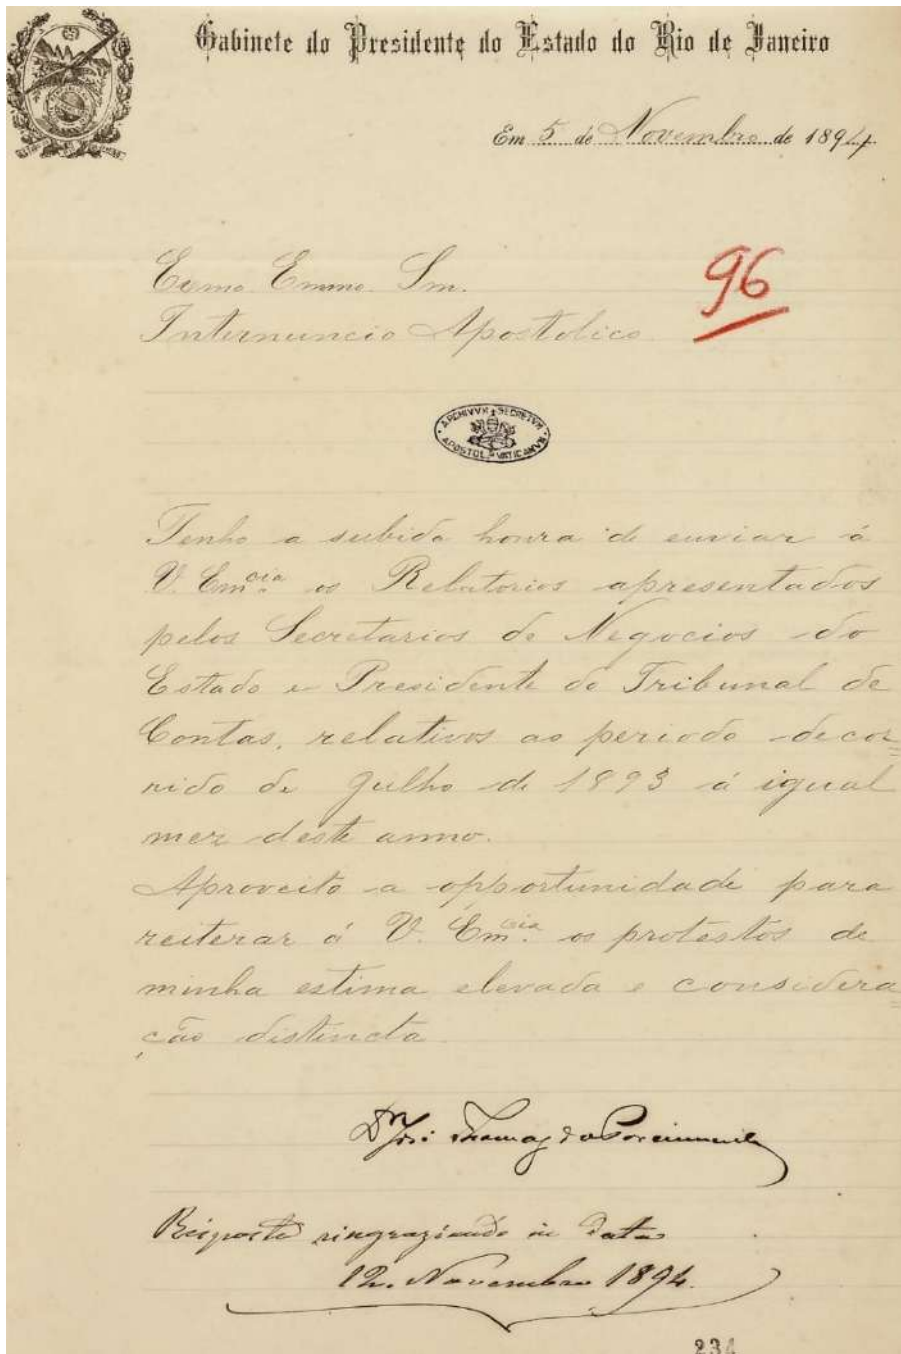 Gabinete do Presidente do Estado do Rio de Janeiro
Em 5 de Novembro de 1894
96
Exmo. Emmo. Snr.
Internuncio Apostolico
ARCHIVVM SECRETVM
APOSTOL. VATICANVM
Tenho a subida honra de enviar á
V. Em.cia os Relatorios apresentados
pelos Secretarios de Negocios do
Estado e Presidente do Tribunal de
Contas, relativos ao periodo decor=
rido de Julho de 1893 á igual
mez deste anno.
Aproveito a opportunidade para
reiterar á V. Em.cia os protestos de
minha estima elevada e considera=
ção distincta
Dr José Thomaz da Porciuncula
Risposto ringraziando in data
12. Novembre 1894.
234